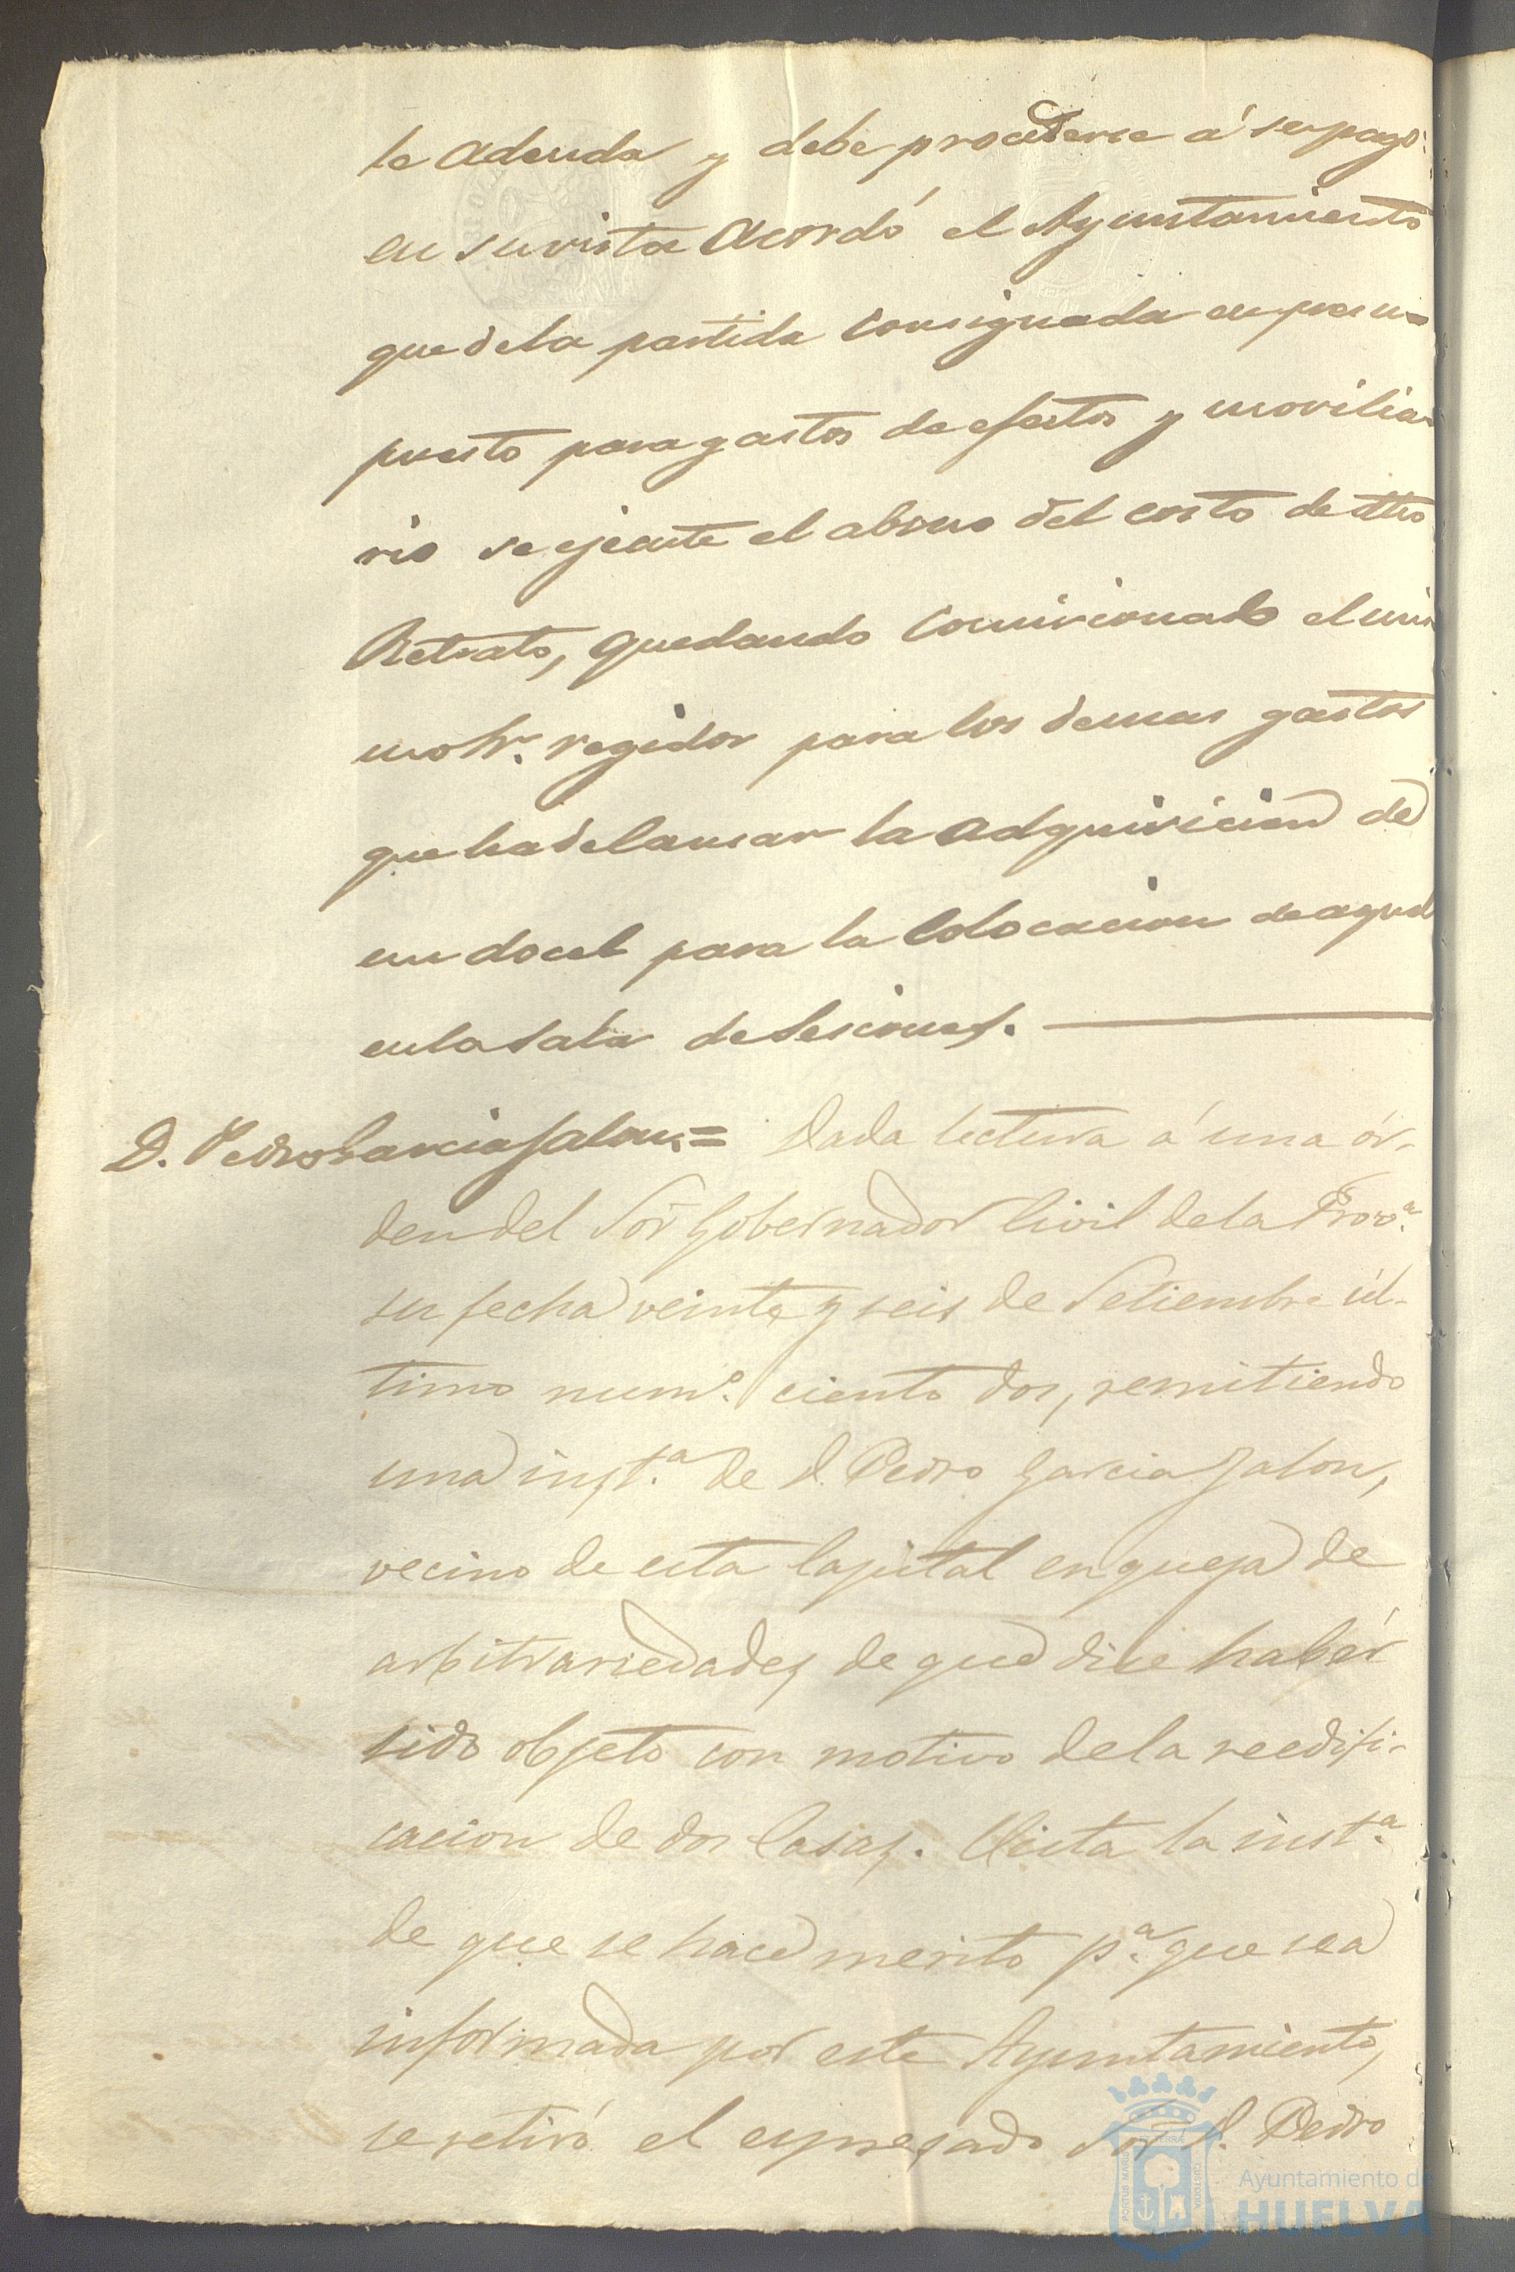 le adeuda y debe procederse á su pago:
en su vista acordó el Ayuntamiento
que de la partida consignada en presu-
puesto para gastos de efectos y movilia-
rio se ejecute el abono del costo de dho
Retrato, quedando comicionado el mis
mo Sr. regidor para los demas gastos
que ha de causar la adquisicion de
un docel para la colocacion de aquel
en la Sala de Sesiones.
D. Pedro Garcia Jalon,= Dada lectura á una ór-
den del Sor Gobernador Civil de la Prova.
su fecha veinte y seis de Setiembre úl-
timo numo. ciento dos, remitiendo
una insta. de D. Pedro Garcia Jalon,
vecino de esta Capital en queja de
arbitrariedades de que dice habér
sido objeto con motivo de la reedifi-
cacion de dos Casas. Vista la insta.
de que se hace merito pa. que sea
informada por este Ayuntamiento,
se retiró el espresado Sor D. Pedro
Ayuntamiento de
HUELVA